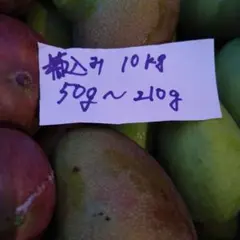 箱込み 10kg
50g〜210g